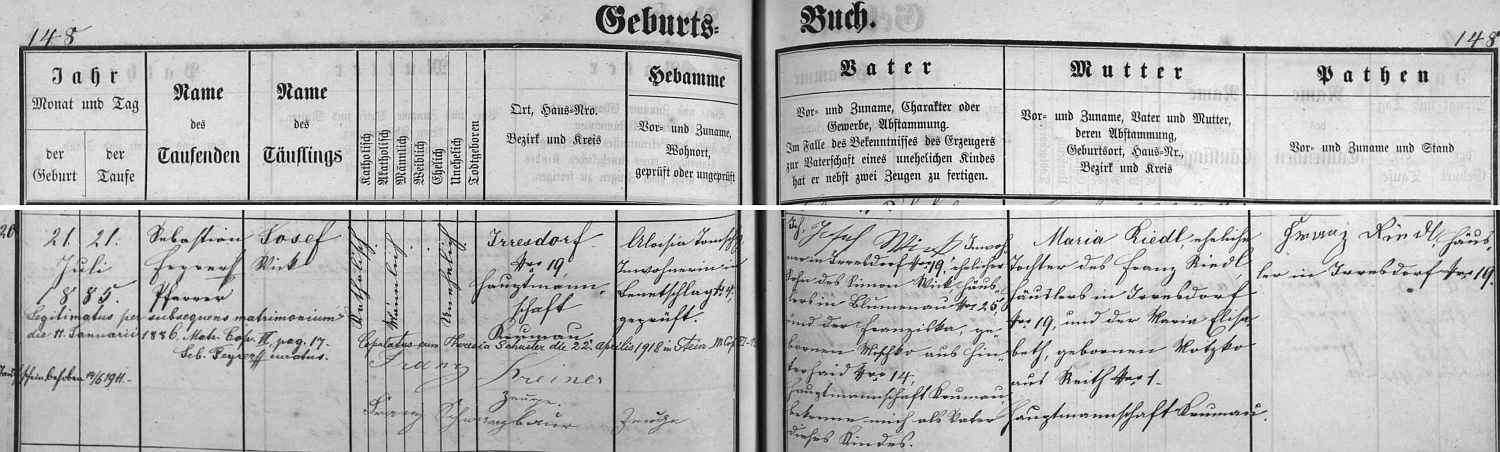 148
Geburts=
Buch.
148
Jahr
Monat und Tag
der
Geburt
der
Taufe
Name
des
Taufenden
Name
des
Täuflings
Katholisch
Akatholisch
Männlich
Weiblich
Ehelich
Unehelich
Todtgeboren
Ort, Haus-Nro.
Bezirk und Kreis
Hebamme
Vor- und Zuname,
Wohnort,
geprüft oder ungeprüft
Vater
Vor- und Zuname, Charakter oder
Gewerbe, Abstammung.
Im Falle des Bekenntnisses des Erzeugers
zur Vaterschaft eines unehelichen Kindes
hat er nebst zwei Zeugen zu fertigen.
Mutter
Vor- und Zuname, Vater und Mutter,
deren Abstammung,
Geburtsort, Haus-Nr.,
Bezirk und Kreis
Pathen
Vor- und Zuname und Stand
21. 21.
Juli
1885.
Sebastian
Pfarrer
Josef
Wick
Katholisch
Männlich
Unehelich
Irresdorf
Nro 19,
Hauptmann-
schaft
Krumau.
Aloisia
Inwohnerin in
Benetschlag N 4,
geprüft.
Legitimatus per subsequens matrimonium
die 11. Januarii 1886, Matr. Cop. II, pag. 17.
Copulatus cum Theresia Schuster die 22. Aprilis 1918 in Stein
Taufschein behoben 1911.
Franz Preiner
Zeuge.
Franz Zeuge
Josef Wick, Inwoh-
ner in Irresdorf Nro 19, ehelicher
Sohn des Simon Wick, Häus-
lers in Blumenau Nro 25,
und der Franziska, ge-
bornen Mischko aus Hin-
terhaid Nro 14.
Hauptmannschaft Krumau,
bekenne mich als Vater
dieses Kindes.
Maria Riedl, eheliche
Tochter des Franz Riedl
Häuslers in Irresdorf
Nro 19, und der Maria Elisa-
beth, gebornen Motzko
aus Reith Nro 1.
Hauptmannschaft Krumau.
Franz Riedl, Häus-
ler in Irresdorf Nro 19.